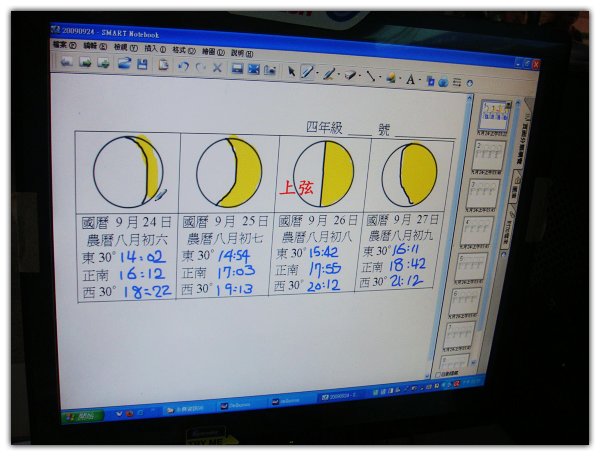 20090924 - SMART Notebook
檔案(F) 編輯(E) 檢視(V) 插入(I) 格式(O) 繪圖(D) 說明(H)
四年級 ____ 號 ____
上弦
國曆 9 月 24 日 國曆 9 月 25 日 國曆 9 月 26 日 國曆 9 月 27 日
農曆八月初六 農曆八月初七 農曆八月初八 農曆八月初九
東 30° 14:02 東 30° 14:54 東 30° 15:42 東 30° 16:11
正南 16:12 正南 17:03 正南 17:55 正南 18:42
西 30° 18:22 西 30° 19:13 西 30° 20:12 西 30° 21:12
開始
20090924 - S